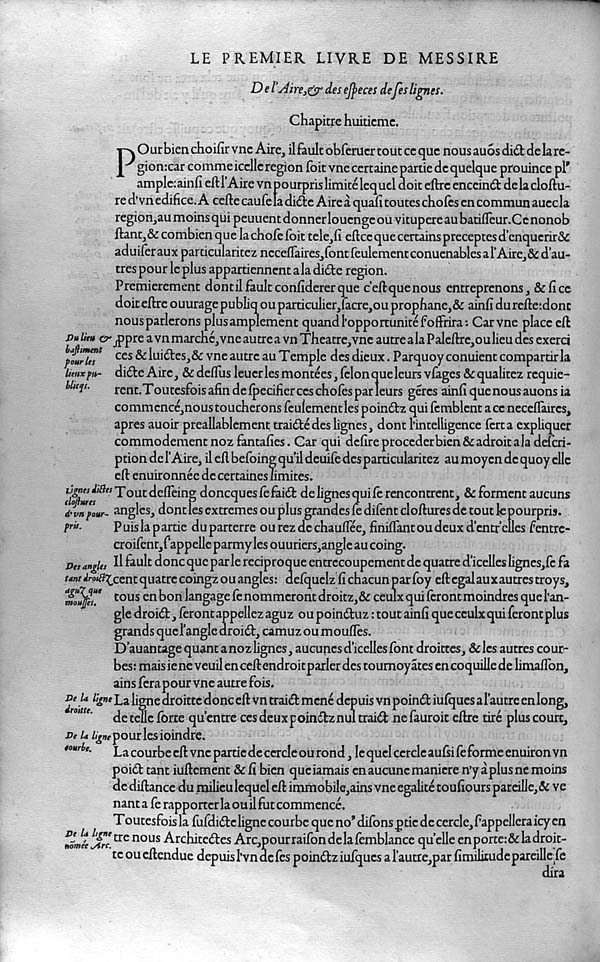 LE PREMIER LIVRE DE MESSIRE
De l'Aire,& des especes de ses lignes.
Chapitre huitieme.
POur bien choisir vne Aire, il fault obseruer tout ce que nous auõs dict de la re-
gion:car comme icelle region soit vne certaine partie de quelque prouince pl⁹
ample:ainsi est l'Aire vn pourpris limité lequel doit estre enceinct de la clostu-
re d'vn edifice. A ceste cause la dicte Aire à quasi toutes choses en commun auec la
region,au moins qui peuuent donner louenge ou vitupere au batisseur. Ce nonob
stant,& combien que la chose soit tele,si estce que certains preceptes d'enquerir &
aduiser aux particularitez necessaires,sont seulement conuenables a l'Aire,& d'au-
tres pour le plus appartiennent a la dicte region.
Premierement dont il fault considerer que c'est que nous entreprenons, & si ce
doit estre ouurage publiq ou particulier,sacre,ou prophane,& ainsi du reste:dont
nous parlerons plus amplement quand l'opportunité s'offrira: Car vne place est
Du lieu & bastiment pour les lieux publicqs.
ꝓpre a vn marché,vne autre a vn Theatre,vne autre a la Palestre,ou lieu des exerci
ces & luictes,& vne autre au Temple des dieux. Parquoy conuient compartir la
dicte Aire, & dessus leuer les montées, selon que leurs vsages & qualitez requie-
rent.Toutesfois afin de specifier ces choses par leurs gẽres ainsi que nous auons ia
commencé,nous toucherons seulement les poinctz qui semblent a ce necessaires,
apres auoir preallablement traicté des lignes, dont l'intelligence sert a expliquer
commodement noz fantasies. Car qui desire proceder bien & adroit a la descri-
ption de l'Aire, il est besoing qu'il deuise des particularitez au moyen de quoy elle
est enuironnée de certaines limites.
Lignes dictes clostures d'vn pour-pris.
Tout desseing doncques se faict de lignes qui se rencontrent, & forment aucuns
angles, dont les extremes ou plus grandes se disent clostures de tout le pourpris.
Puis la partie du parterre ou rez de chaussée, finissant ou deux d'entr'elles s'entre-
croisent,s'appelle parmy les ouuriers,angle au coing.
Des angles tant droictz agutz que mousses.
Il fault donc que par le reciproque entrecoupement de quatre d'icelles lignes,se fa
cent quatre coingz ou angles: desquelz si chacun par soy est egal aux autres troys,
tous en bon langage se nommeront droitz,& ceulx qui seront moindres que l'an-
gle droict, seront appellez aguz ou poinctuz : tout ainsi que ceulx qui seront plus
grands que l'angle droict, camuz ou mousses.
D'auantage quant a noz lignes, aucunes d'icelles sont droittes, & les autres cour-
bes: mais ie ne veuil en cest endroit parler des tournoyãtes en coquille de limasson,
ains sera pour vne autre fois.
De la ligne droitte.
La ligne droitte donc est vn traict mené depuis vn poinct iusques a l'autre en long,
de telle sorte qu'entre ces deux poinctz nul traict ne sauroit estre tiré plus court,
pour les ioindre.
De la ligne courbe.
La courbe est vne partie de cercle ou rond, le quel cercle aussi se forme enuiron vn
poict tant iustement & si bien que iamais en aucune maniere n'y à plus ne moins
de distance du milieu lequel est immobile,ains vne egalité tousiours pareille,& ve
nant a se rapporter la ou il fut commencé.
Toutesfois la susdicte ligne courbe que no⁹ disons ꝑtie de cercle, s'appellera icy en
De la ligne nõmée Arc.
tre nous Architectes Arc,pour raison de la semblance qu'elle en porte:& la droit-
te ou estendue depuis l'vn de ses poinctz iusques a l'autre,par similitude pareille se
dira